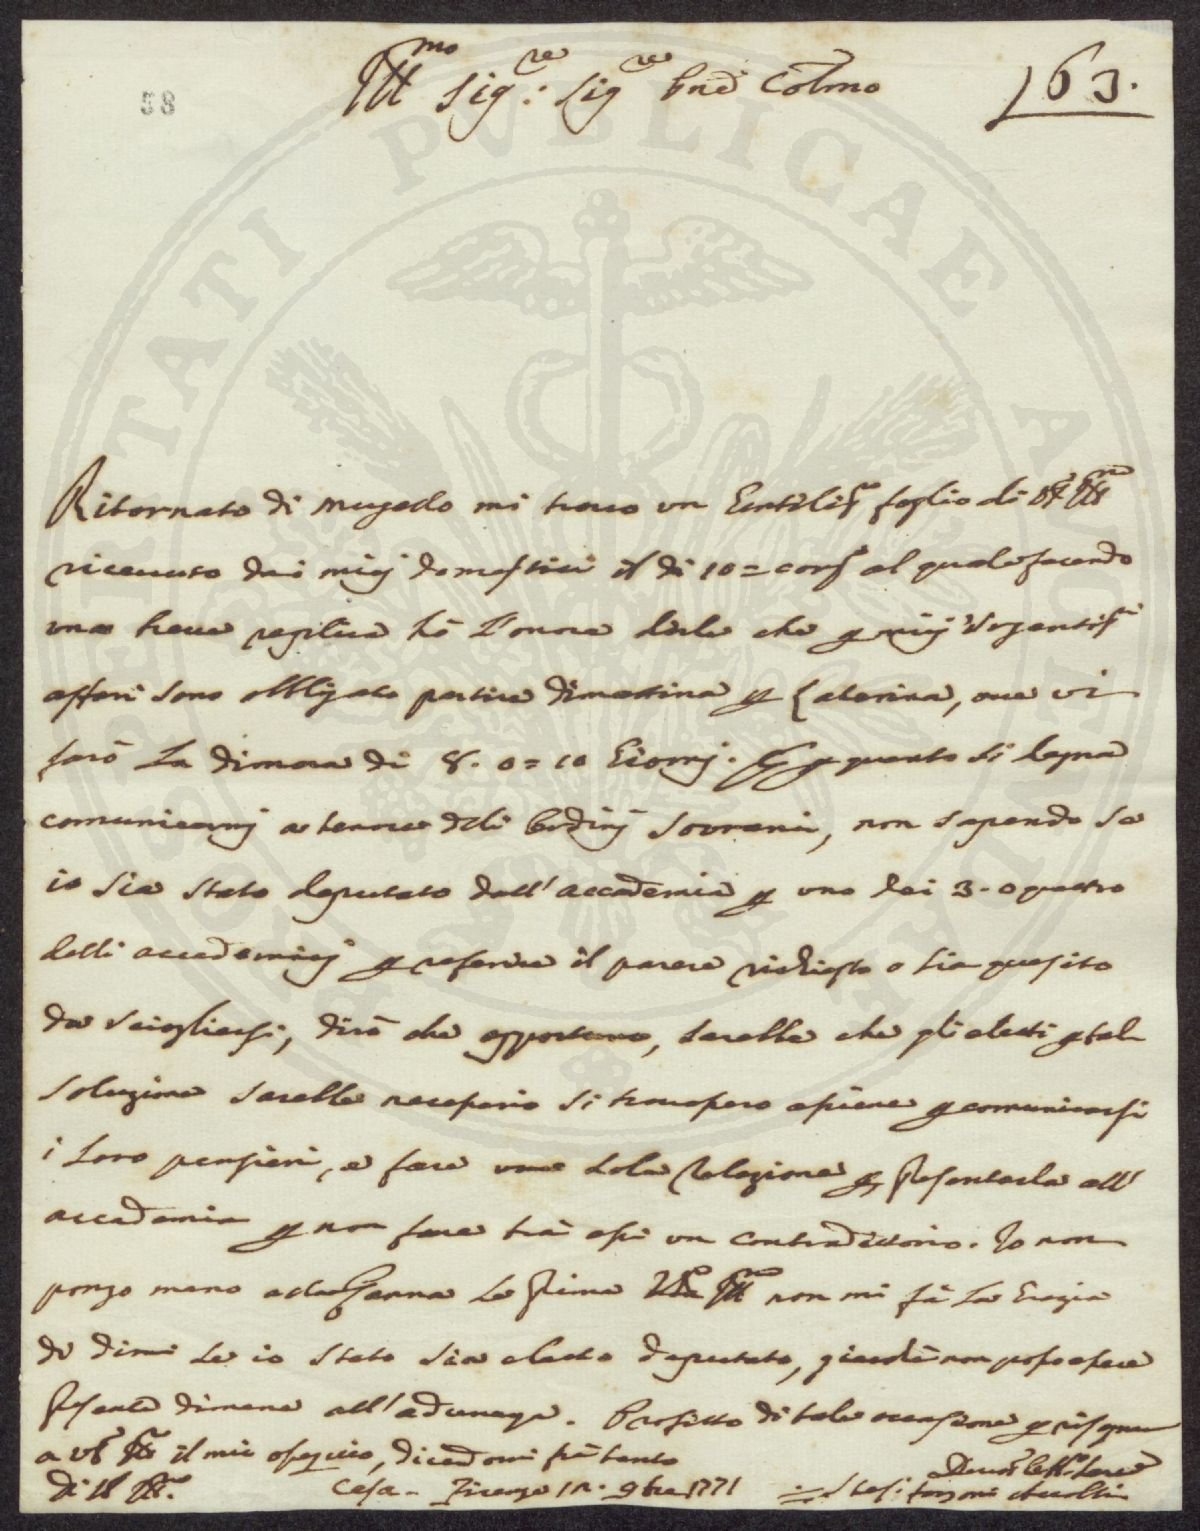 58
Ill.mo Sig.re: Sig.re Pne Colmo
163.
Ritornato di Mugello mi trovo un Gentiliss.o foglio di VS Ill.ma
ricevuto dai miej domestici il di 10= corr.e al quale facendo
una breve replica hò l'onore dirle che p miej Urgentiss.i
affari sono obbligato partire dimattina p Caterina, ove vi
farò la dimora di 8. o= 10 Giornj. p quanto si degna
comunicarmj a tenore delli Ordinj Sovrani, non sapendo se
io sia stato deputato dall'accademia p uno dei 3. o quattro
delli accademicj p referire il parere richiesto o sia quesito
da sciogliersi, dirò che opportuno, sarebbe che gli eletti p tal
soluzione sarebbe necessario si trovassero assieme p comunicarsi
i loro pensieri, e fare una sola Relazione p presentarla all'
accademia p non fare trà essi un contradittorio. Io non
pongo mano alla Penna se prima VS Ill.ma non mi fà la Grazia
di dirmi se io stato sia eletto deputato, giacchè non posso essere
presente dimane all'adunanza. Profitto di tale occasione p risegnare
a VS Ill.ma il mio ossequio, dicendomi frà tanto
Di VS Ill.ma
Casa - Firenze 12. 9bre 1771